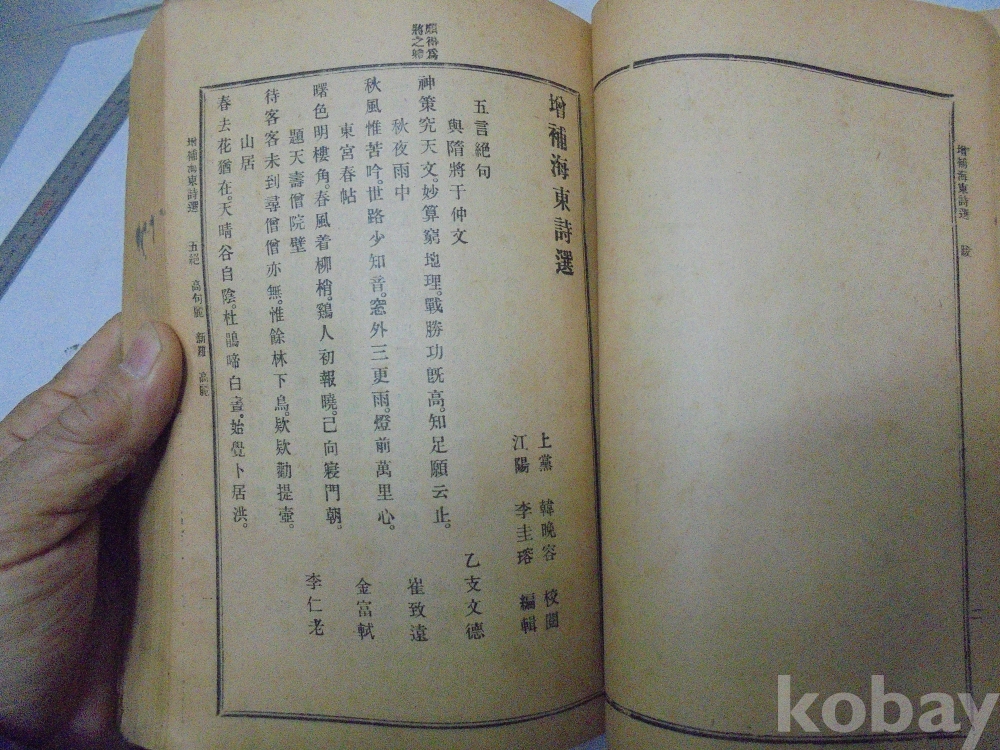 增補海東詩選 跋
增補海東詩選
上黨 韓晚容 校閱
江陽 李圭瑢 編輯
五言絕句
與隋將于仲文 乙支文德
神策究天文。妙算窮地理。戰勝功旣高。知足願云止。
秋夜雨中 崔致遠
秋風惟苦吟。世路少知音。窓外三更雨。燈前萬里心。
東宮春帖 金富軾
曙色明樓角。春風着柳梢。鷄人初報曉。已向寢門朝。
題天壽僧院壁 李仁老
待客客未到尋僧僧亦無。惟餘林下鳥。欵欵勸提壺。
山居
春去花猶在。天晴谷自陰。杜鵑啼白晝。始覺卜居洪。
增補海東詩選 五絕 高句麗 新羅 高麗
kobay